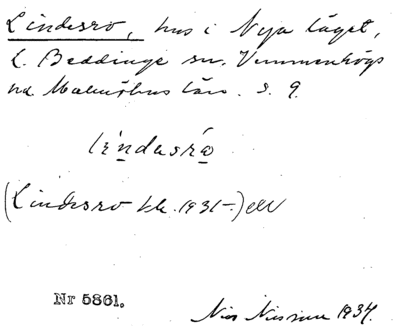 Lindesro, hus i Nya läget,
L. Beddinge sn. Vemmenhögs
hd Malmöhus län. s. 9.
líndasró
(Lindesro kk. 1931-)
Nr 5861.
Nils Nilsson 1934.